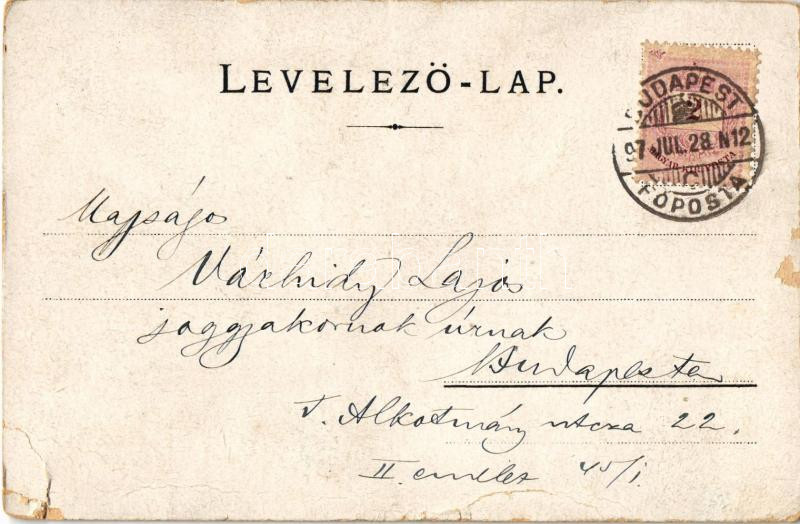 LEVELEZÖ-LAP.
2
MAGYAR KIR. POSTA
BUDAPEST
97 JUL. 28. N12
C
FŐPOSTA
Várhidy Lajos
joggyakornok úrnak
Budapesten
V. Alkotmány utcza 22.
II. emelet